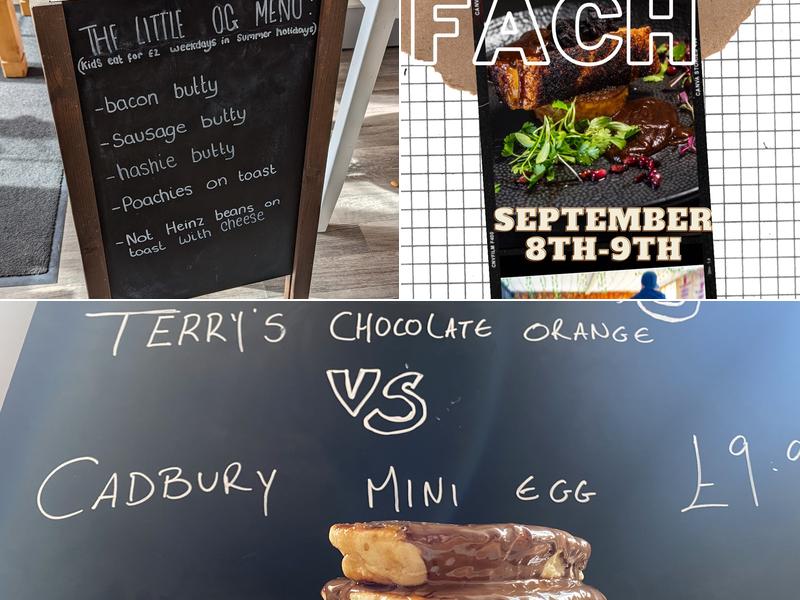 THE LITTLE OG MENU!
(Kids eat for £2 weekdays in summer holidays)
-bacon butty
-Sausage butty
-hashie butty
-Poachies on toast
-Not Heinz beans on
toast with cheese
FACH
SEPTEMBER
8TH-9TH
TERRY'S CHOCOLATE ORANGE
VS
CADBURY MINI EGG £9.9